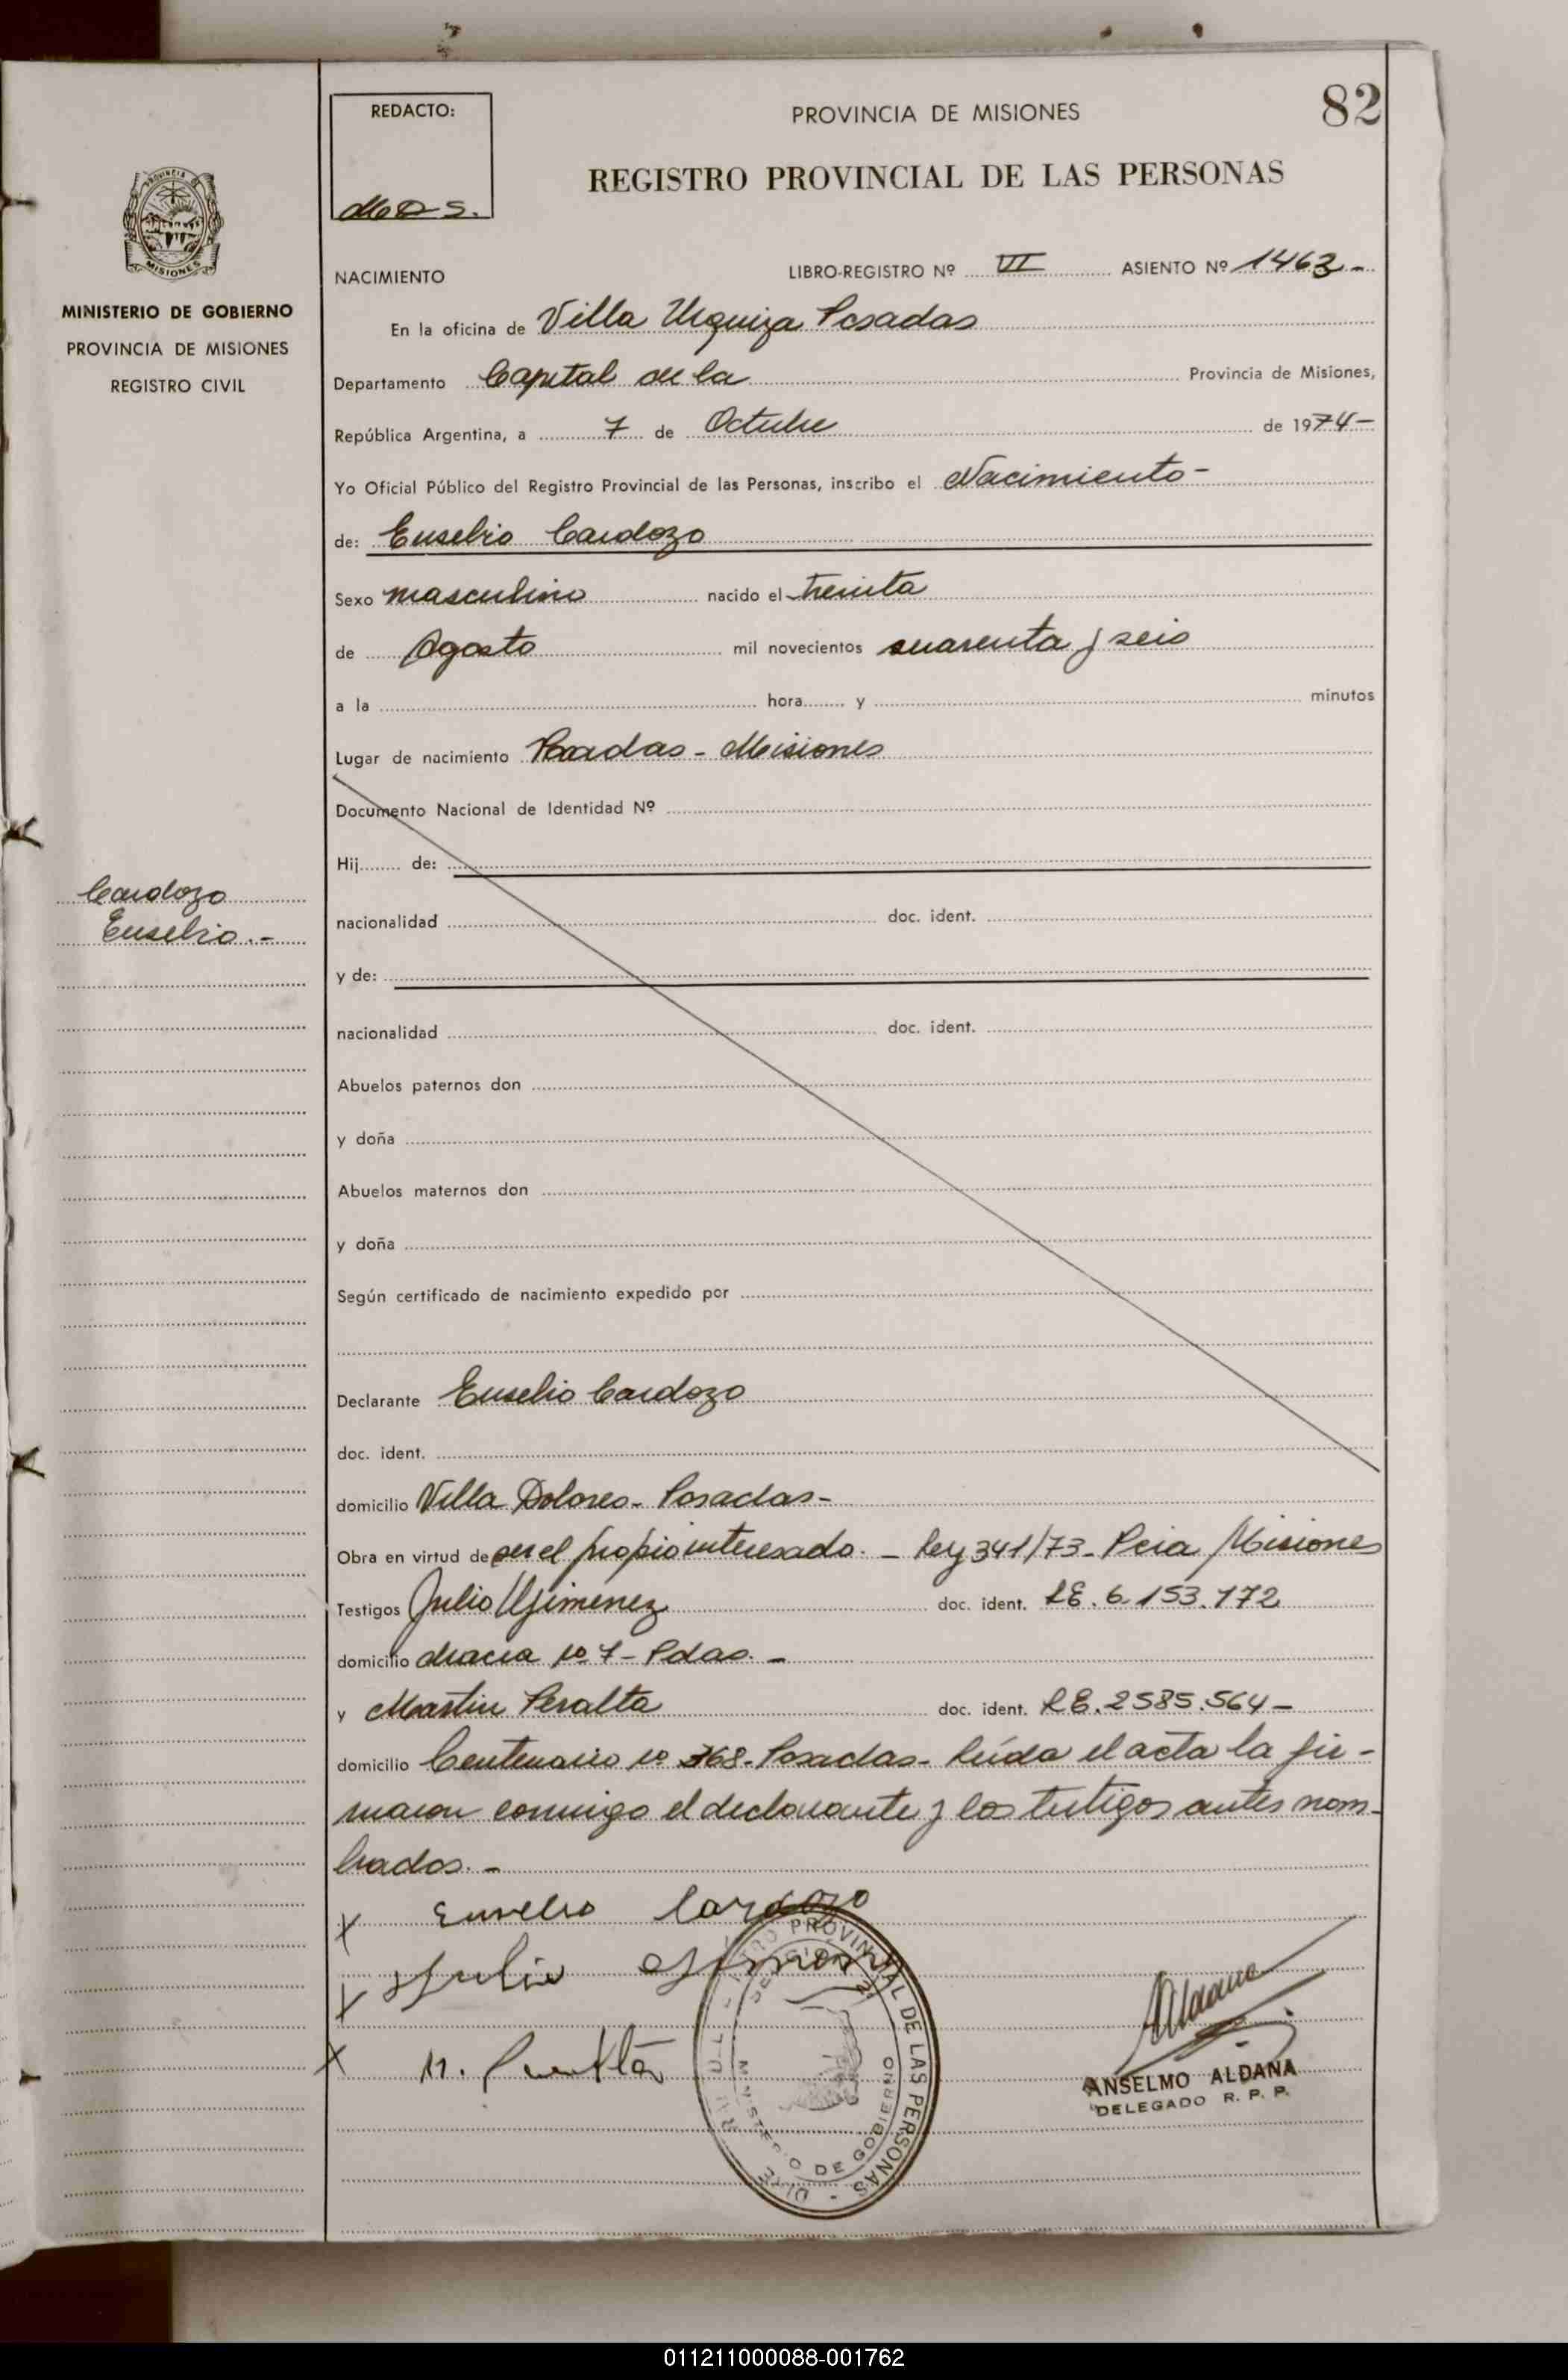 82
REDACTO:
PROVINCIA DE MISIONES
REGISTRO PROVINCIAL DE LAS PERSONAS
PROVINCIA DE
MISIONES
MINISTERIO DE GOBIERNO
PROVINCIA DE MISIONES
REGISTRO CIVIL
NACIMIENTO
LIBRO-REGISTRO Nº VI ASIENTO Nº 1463-
En la oficina de Villa Urquiza Posadas
Departamento Capital de la Provincia de Misiones,
República Argentina, a 7 de Octubre de 1974-
Yo Oficial Público del Registro Provincial de las Personas, inscribo el Nacimiento-
de: Eusebio Cardozo
Sexo masculino nacido el treinta
de Agosto mil novecientos cuarenta y seis
a la hora y minutos
Lugar de nacimiento Posadas - Misiones
Documento Nacional de Identidad Nº
Hij de:
Cardozo
Eusebio.-
nacionalidad doc. ident.
y de:
nacionalidad doc. ident.
Abuelos paternos don
y doña
Abuelos maternos don
y doña
Según certificado de nacimiento expedido por
Declarante Eusebio Cardozo
doc. ident.
domicilio Villa Dolores- Posadas-
Obra en virtud de ser el propio interesado. - Ley 341/73- Pcia Misiones
Testigos Julio Gimenez doc. ident. LE. 6.153.172
domicilio chacra nº 7 - Pdas. -
y Martin Peralta doc. ident. LE. 2585.564-
domicilio Centenario nº 368- Posadas- Leída el acta la fir-
maron conmigo el declarante y los testigos antes nom-
brados. -
x Eusebio Cardozo
x Julio Gimenez
x M. Peralta
Aldana
ANSELMO ALDANA
DELEGADO R. P. P.
PROVINCIAL DE LAS PERSONAS
MINISTERIO DE GOBIERNO
011211000088-001762